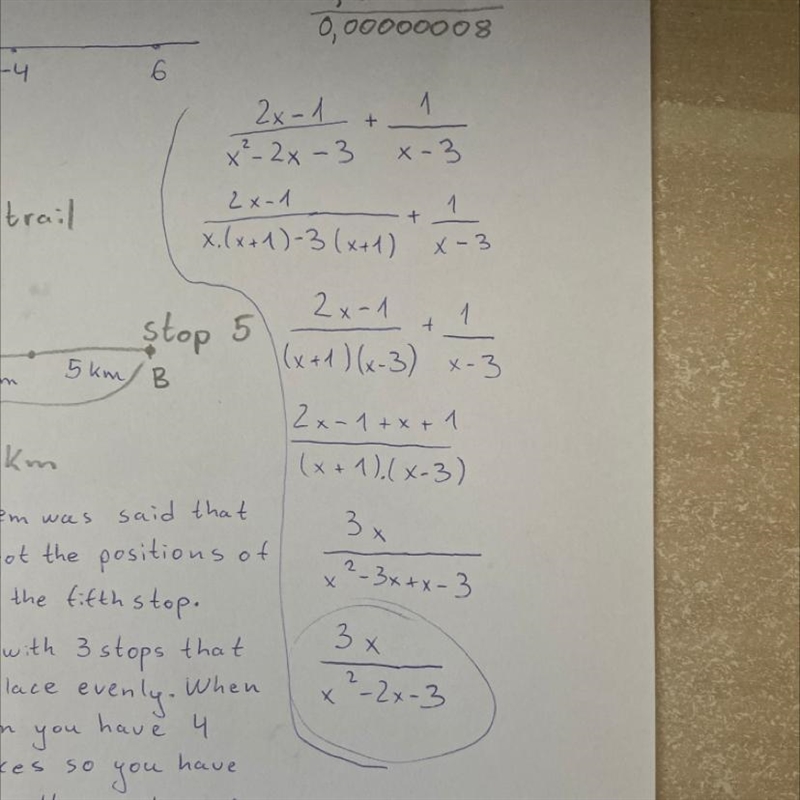 0,00000008
-4 6
(2x-1)/(x²-2x-3) + 1/(x-3)
trail
(2x-1)/(x.(x+1)-3(x+1)) + 1/(x-3)
stop 5
5 km B
(2x-1)/((x+1)(x-3)) + 1/(x-3)
(2x-1+x+1)/((x+1).(x-3))
km
was said that
the positions of
the fifth stop.
with 3 stops that
evenly. When
you have 4
so you have
3x/(x²-3x+x-3)
3x/(x²-2x-3)